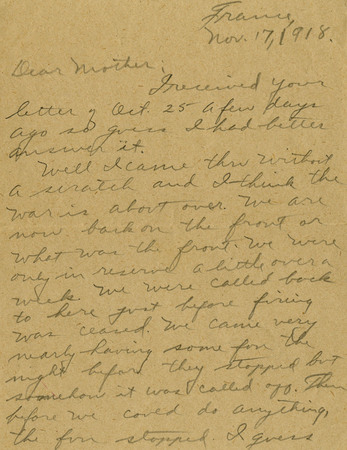 France,
Nov. 17, 1918.
Dear Mother,
I received your
letter of Oct. 25 a few days
ago so guess I had better
answer it.
Well I came thru without
a scratch and I think the
war is about over. We are
now back on the front or
what was the front. We were
only in reserve a little over a
week. We were called back
to here just before firing
was ceased. We came very
nearly having some fun the
night before they stopped but
somehow it was called off. Then
before we could do anything,
the fun stopped. I guess